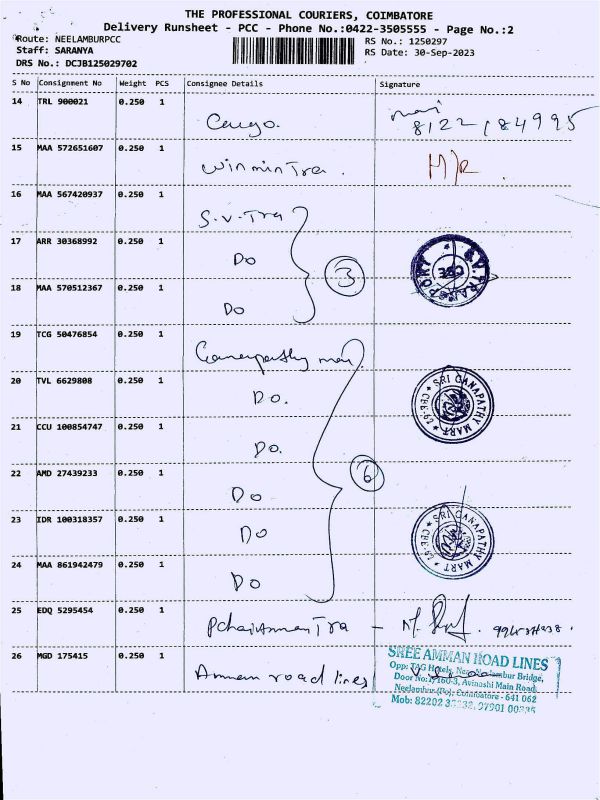 THE PROFESSIONAL COURIERS, COIMBATORE
Delivery Runsheet - PCC - Phone No.:0422-3505555 - Page No.:2
Route: NEELAMBURPCC
RS No.: 1250297
Staff: SARANYA
RS Date: 30-Sep-2023
DRS No.: DCJB125029702
S No Consignment No Weight PCS Consignee Details Signature
14 TRL 900021 0.250 1
Cargo. 8122184995
15 MAA 572651607 0.250 1
winmin Tra. M/R
16 MAA 567420937 0.250 1
S.V-Tra
17 ARR 30368992 0.250 1
Do 3 S.V.TRANSPORT
18 MAA 570512367 0.250 1
Do
19 TCG 50476854 0.250 1
20 TVL 6629808 0.250 1
Do. SRI GANAPATHY MART
21 CCU 100854747 0.250 1
Do.
22 AMD 27439233 0.250 1
Do 6
23 IDR 100318357 0.250 1
Do SRI GANAPATHY MART
24 MAA 861942479 0.250 1
Do
25 EDQ 5295454 0.250 1
Tra -
26 MGD 175415 0.250 1
Amman road lines
SREE AMMAN ROAD LINES
Opp: TAG Hotels, Near Neelambur Bridge,
Door No: 1/160-3, Avinashi Main Road,
Neelambur (Po), Coimbatore - 641 062
Mob: 82202